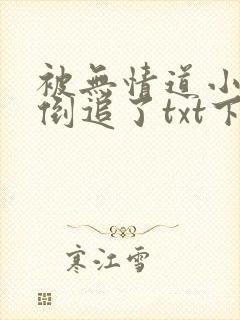 被無情道小
倒追了txt下
寒江雪